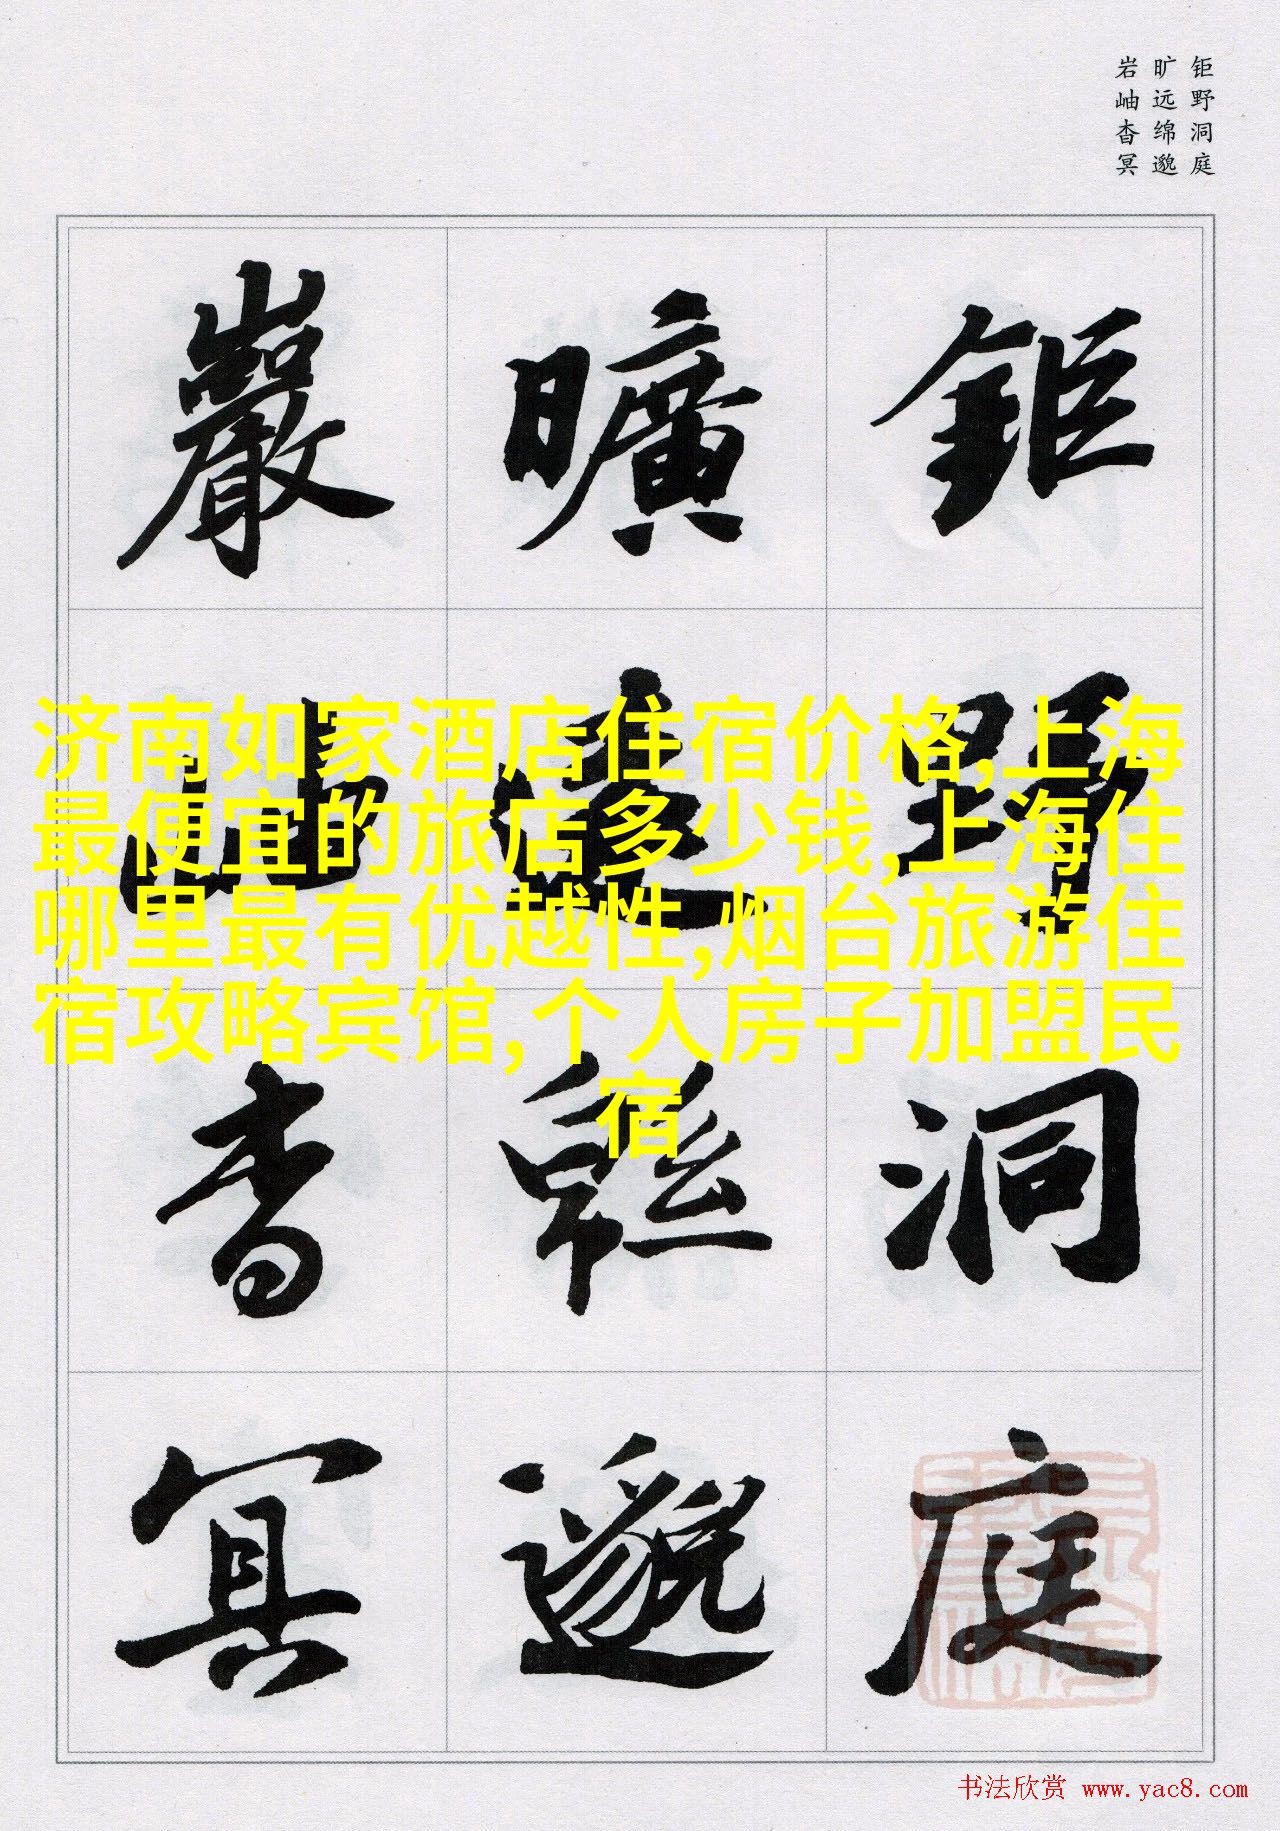 钜野洞庭
旷远绵邈
岩岫杳冥
鉅野洞庭
曠遠緜邈
巖岫杳冥
济南如家酒店住宿价格,上海
最便宜的旅店多少钱,上海住
哪里最有优越性,烟台旅游住
宿攻略宾馆,个人房子加盟民
宿
书法欣赏 www.yac8.com